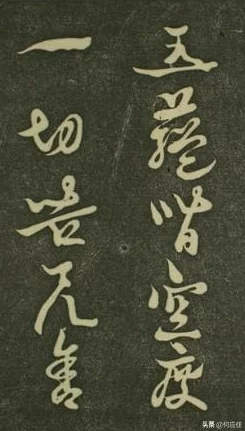 五蘊皆空度
一切苦厄舍
头条